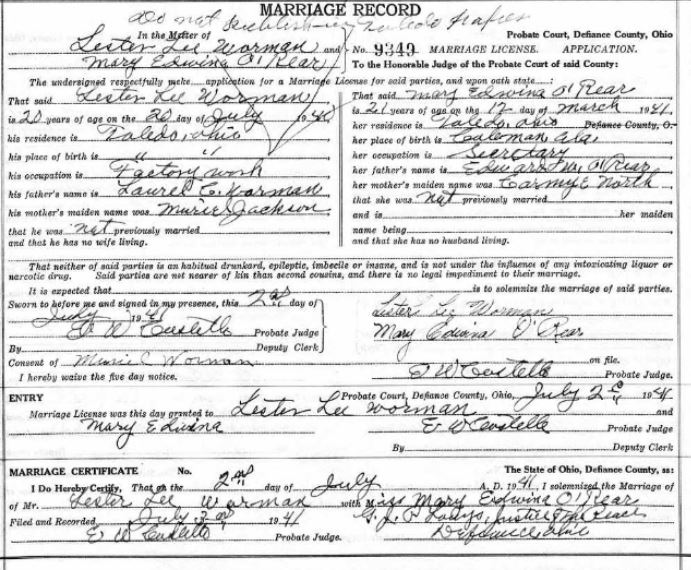 MARRIAGE RECORD
Do not publish in Toledo Papers
In the Matter of
Lester Lee Worman and
Mary Edwina O'Rear
Probate Court, Defiance County, Ohio
No. 9349 MARRIAGE LICENSE. APPLICATION.
To the Honorable Judge of the Probate Court of said County:
The undersigned respectfully make application for a Marriage License for said parties, and upon oath state:
That said Lester Lee Worman
is 20 years of age on the 20 day of July 1940
his residence is Toledo, Ohio
his place of birth is " "
his occupation is Factory work
his father's name is Laurel C. Worman
his mother's maiden name was Muriel Jackson
that he was not previously married
and that he has no wife living.
That said Mary Edwina O'Rear
is 21 years of age on the 12 day of March 1941,
her residence is Toledo, Ohio Defiance County, O.
her place of birth is Ala.
her occupation is Secretary
her father's name is Edward O'Rear
her mother's maiden name was Carmye North
that she was not previously married
and is her maiden
name being
and that she has no husband living.
That neither of said parties is an habitual drunkard, epileptic, imbecile or insane, and is not under the influence of any intoxicating liquor or
narcotic drug. Said parties are not nearer of kin than second cousins, and there is no legal impediment to their marriage.
It is expected that is to solemnize the marriage of said parties.
Sworn to before me and signed in my presence, this 2nd day of
July 1941
E W Costello Probate Judge
By Deputy Clerk
Lester Lee Worman
Mary Edwina O'Rear
Consent of Muriel Worman on file.
I hereby waive the five day notice. E W Costello Probate Judge.
ENTRY Probate Court, Defiance County, Ohio, July 2nd 1941
Marriage License was this day granted to Lester Lee Worman and
Mary Edwina E W Costello Probate Judge
By Deputy Clerk
MARRIAGE CERTIFICATE No. The State of Ohio, Defiance County, ss:
I Do Hereby Certify, That on the 2nd day of July A. D. 1941, I solemnized the Marriage of
of Mr. Lester Lee Worman with Miss Mary Edwina O'Rear
Filed and Recorded July 1941 Justice of the Peace
E W Costello Probate Judge. Defiance, Ohio